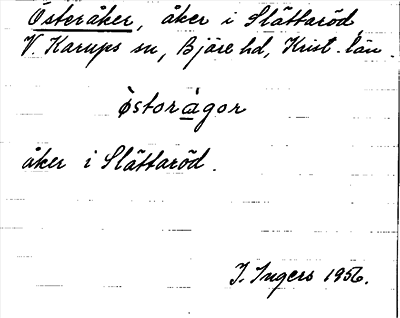 Österåker, åker i Slättaröd,
V. Karups sn, Bjäre hd, Krist. län.
östorågor
åker i Slättaröd.
I. Ingers 1956.